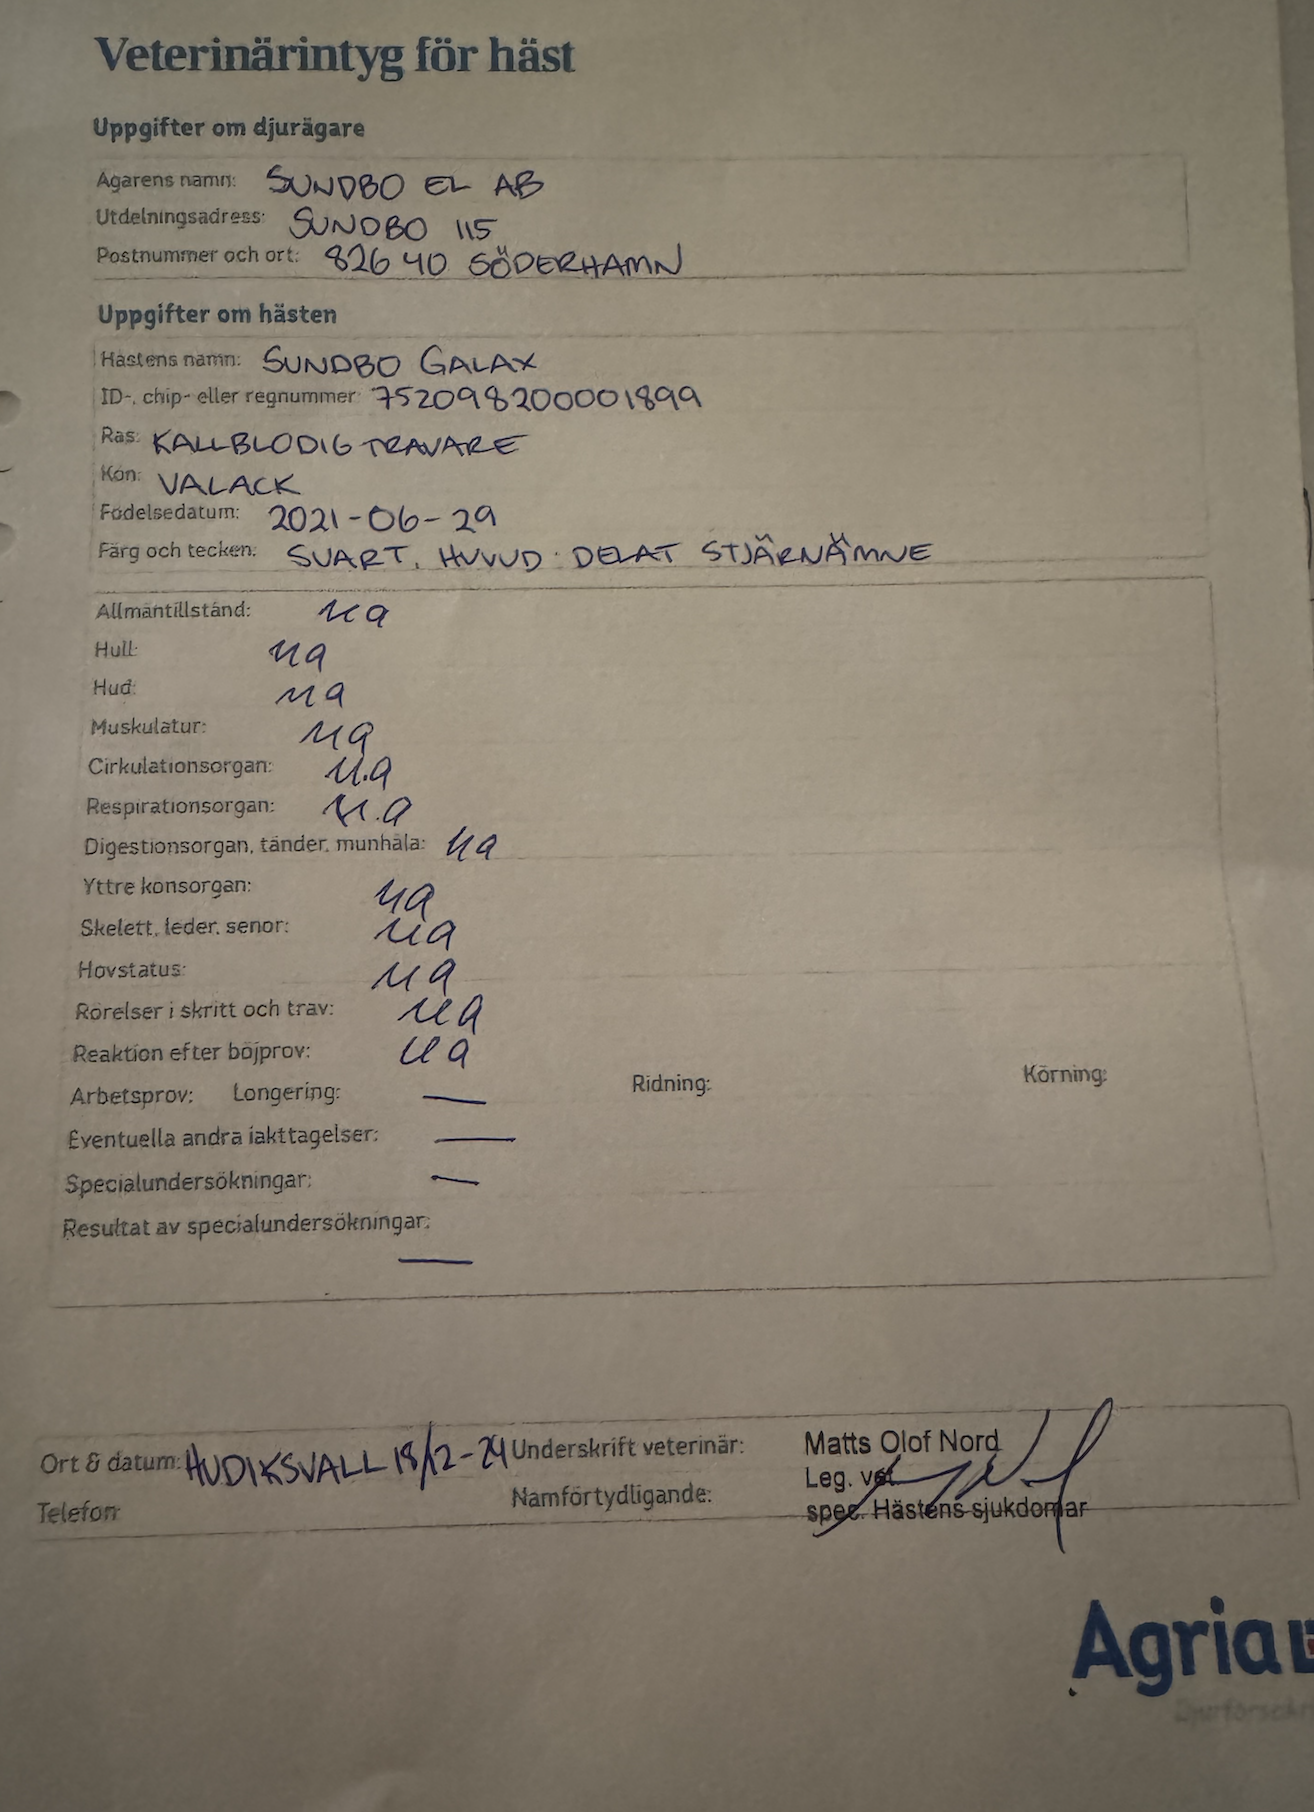 Veterinärintyg för häst
Uppgifter om djurägare
Ägarens namn: SUNDBO EL AB
Utdelningsadress: SUNDBO 115
Postnummer och ort: 826 40 SÖDERHAMN
Uppgifter om hästen
Hästens namn: SUNDBO GALAX
ID-, chip- eller regnummer: 752098200001899
Ras: KALLBLODIG TRAVARE
Kön: VALACK
Födelsedatum: 2021-06-29
Färg och tecken: SVART, HUVUD: DELAT STJÄRNÄMNE
Allmäntillstånd: ua
Hull: ua
Hud: ua
Muskulatur: ua
Cirkulationsorgan: u.a
Respirationsorgan: u.a
Digestionsorgan, tänder, munhåla: ua
Yttre könsorgan: ua
Skelett, leder, senor: ua
Hovstatus: ua
Rörelser i skritt och trav: ua
Reaktion efter böjprov: ua
Arbetsprov: Longering: — Ridning: Körning:
Eventuella andra iakttagelser: —
Specialundersökningar: —
Resultat av specialundersökningar:
—
Ort & datum: HUDIKSVALL 18/12-24 Underskrift veterinär: Matts Olof Nord
Leg. vet
Telefon: Namförtydligande: spec. Hästens sjukdomar
Agria
Djurförsäkr